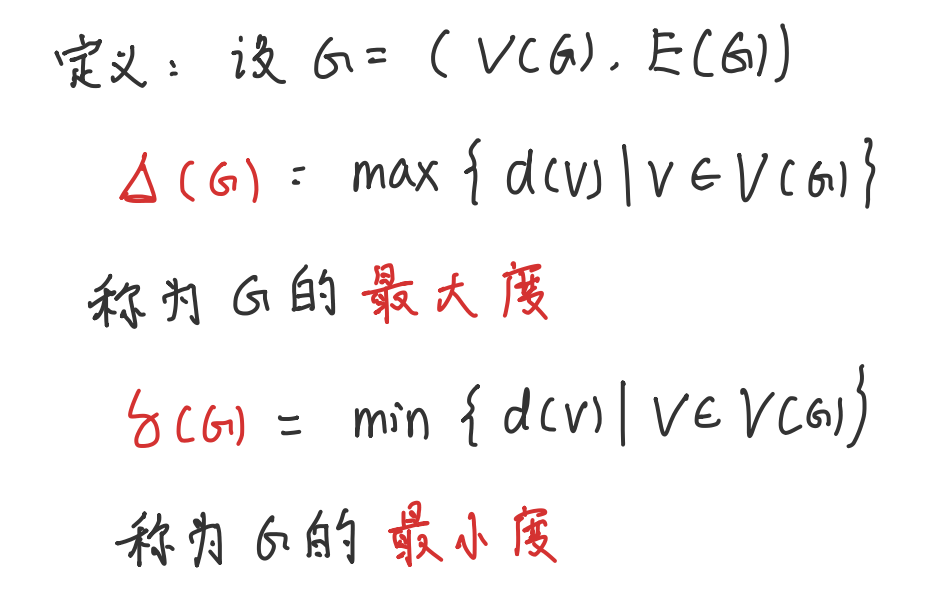 定义：设 G = (V(G), E(G))
Δ(G) = max{d(v)|v∈V(G)}
称为 G 的最大度
δ(G) = min{d(v)|v∈V(G)}
称为 G 的最小度